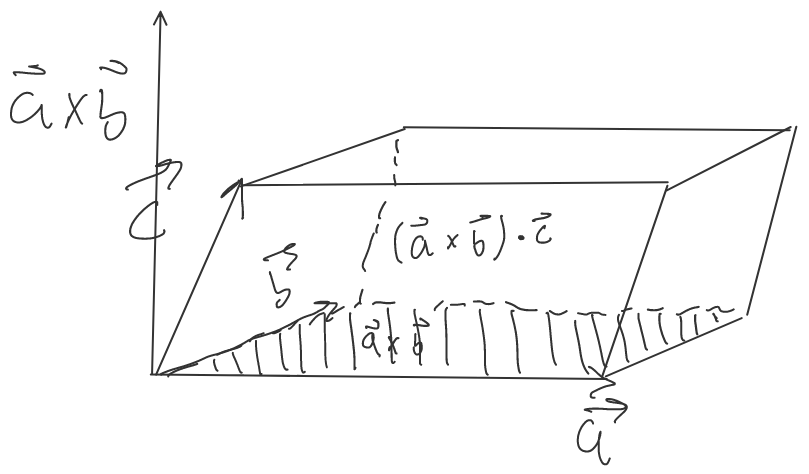 a⃗ × b⃗
c⃗
(a⃗ × b⃗) · c⃗
b⃗
a⃗ × b⃗
a⃗